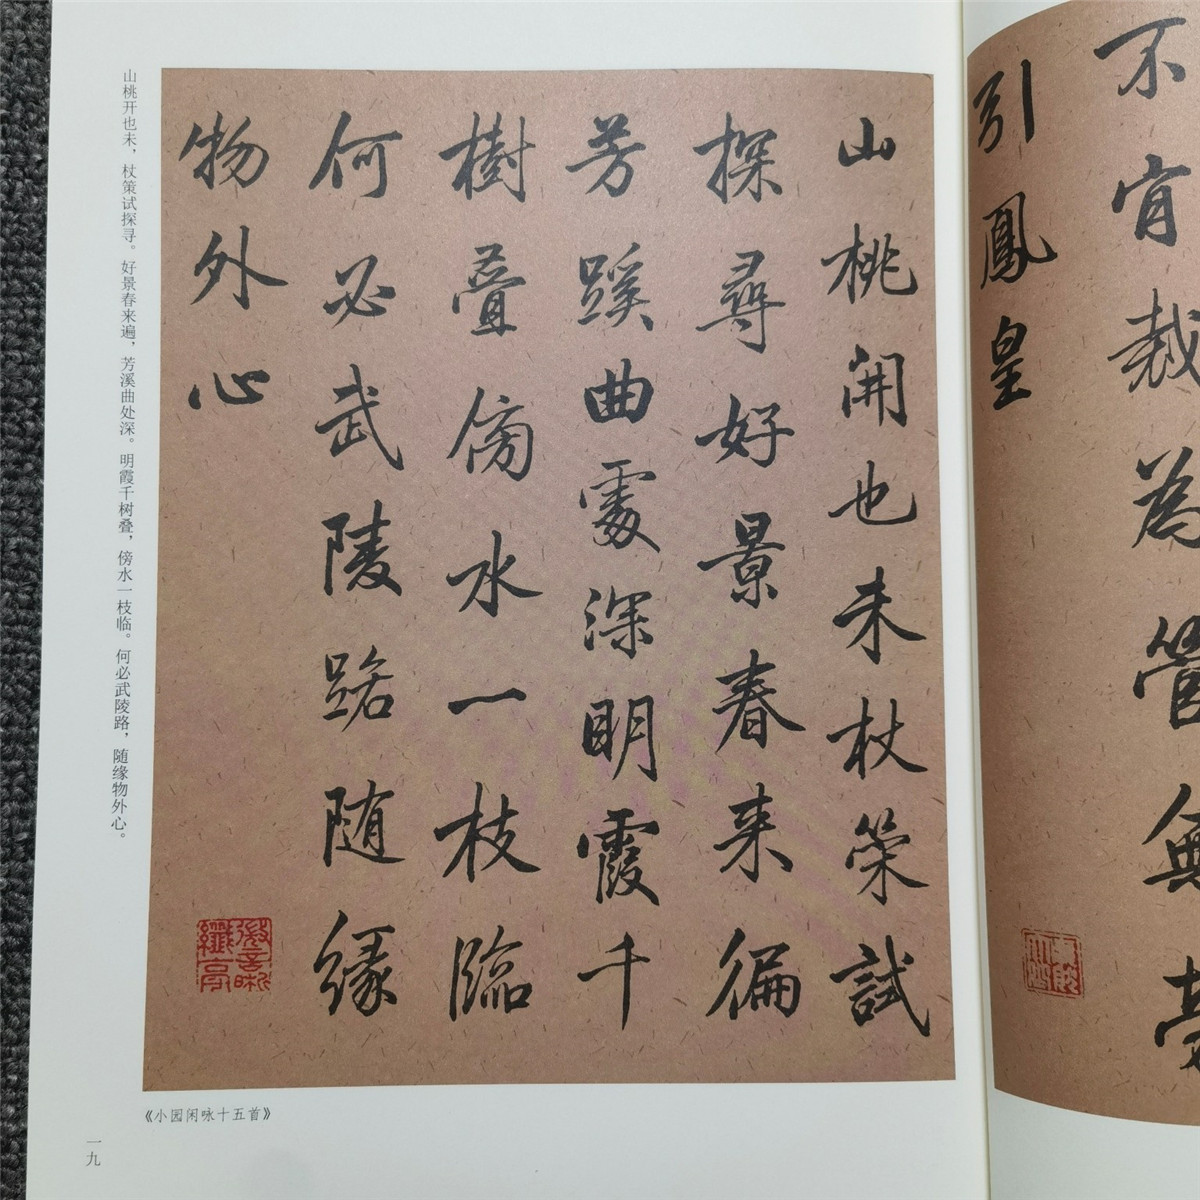 不宜裁為管無
引鳳皇
山桃開也未杖策試
探尋好景春来徧
芳蹊曲處深明霞千
樹疊傍水一枝臨
何必武陵路随緣
物外心
山桃开也未，杖策试探寻。好景春来遍，芳溪曲处深。明霞千树叠，傍水一枝临。何必武陵路，随缘物外心。
《小园闲咏十五首》
一九